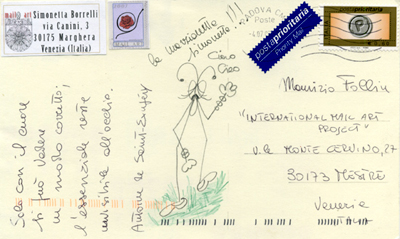 mail art
Simonetta Borrelli
via Canini, 3
30175 Marghera
Venezia (Italia)
la marionetta
simonetta!!!
Ciao
Ciao
PADOVA
postaprioritaria
Priority Mail
postaprioritaria
Maurizio Follin
"INTERNATIONAL MAIL ART
PROJECT"
V.le MONTE CERVINO, 27
30173 MESTRE
Venezia
Solo con il cuore
si può vedere
in modo corretto;
l'essenziale resta
invisibile all'occhio.
Antoine de Saint-Exupéry